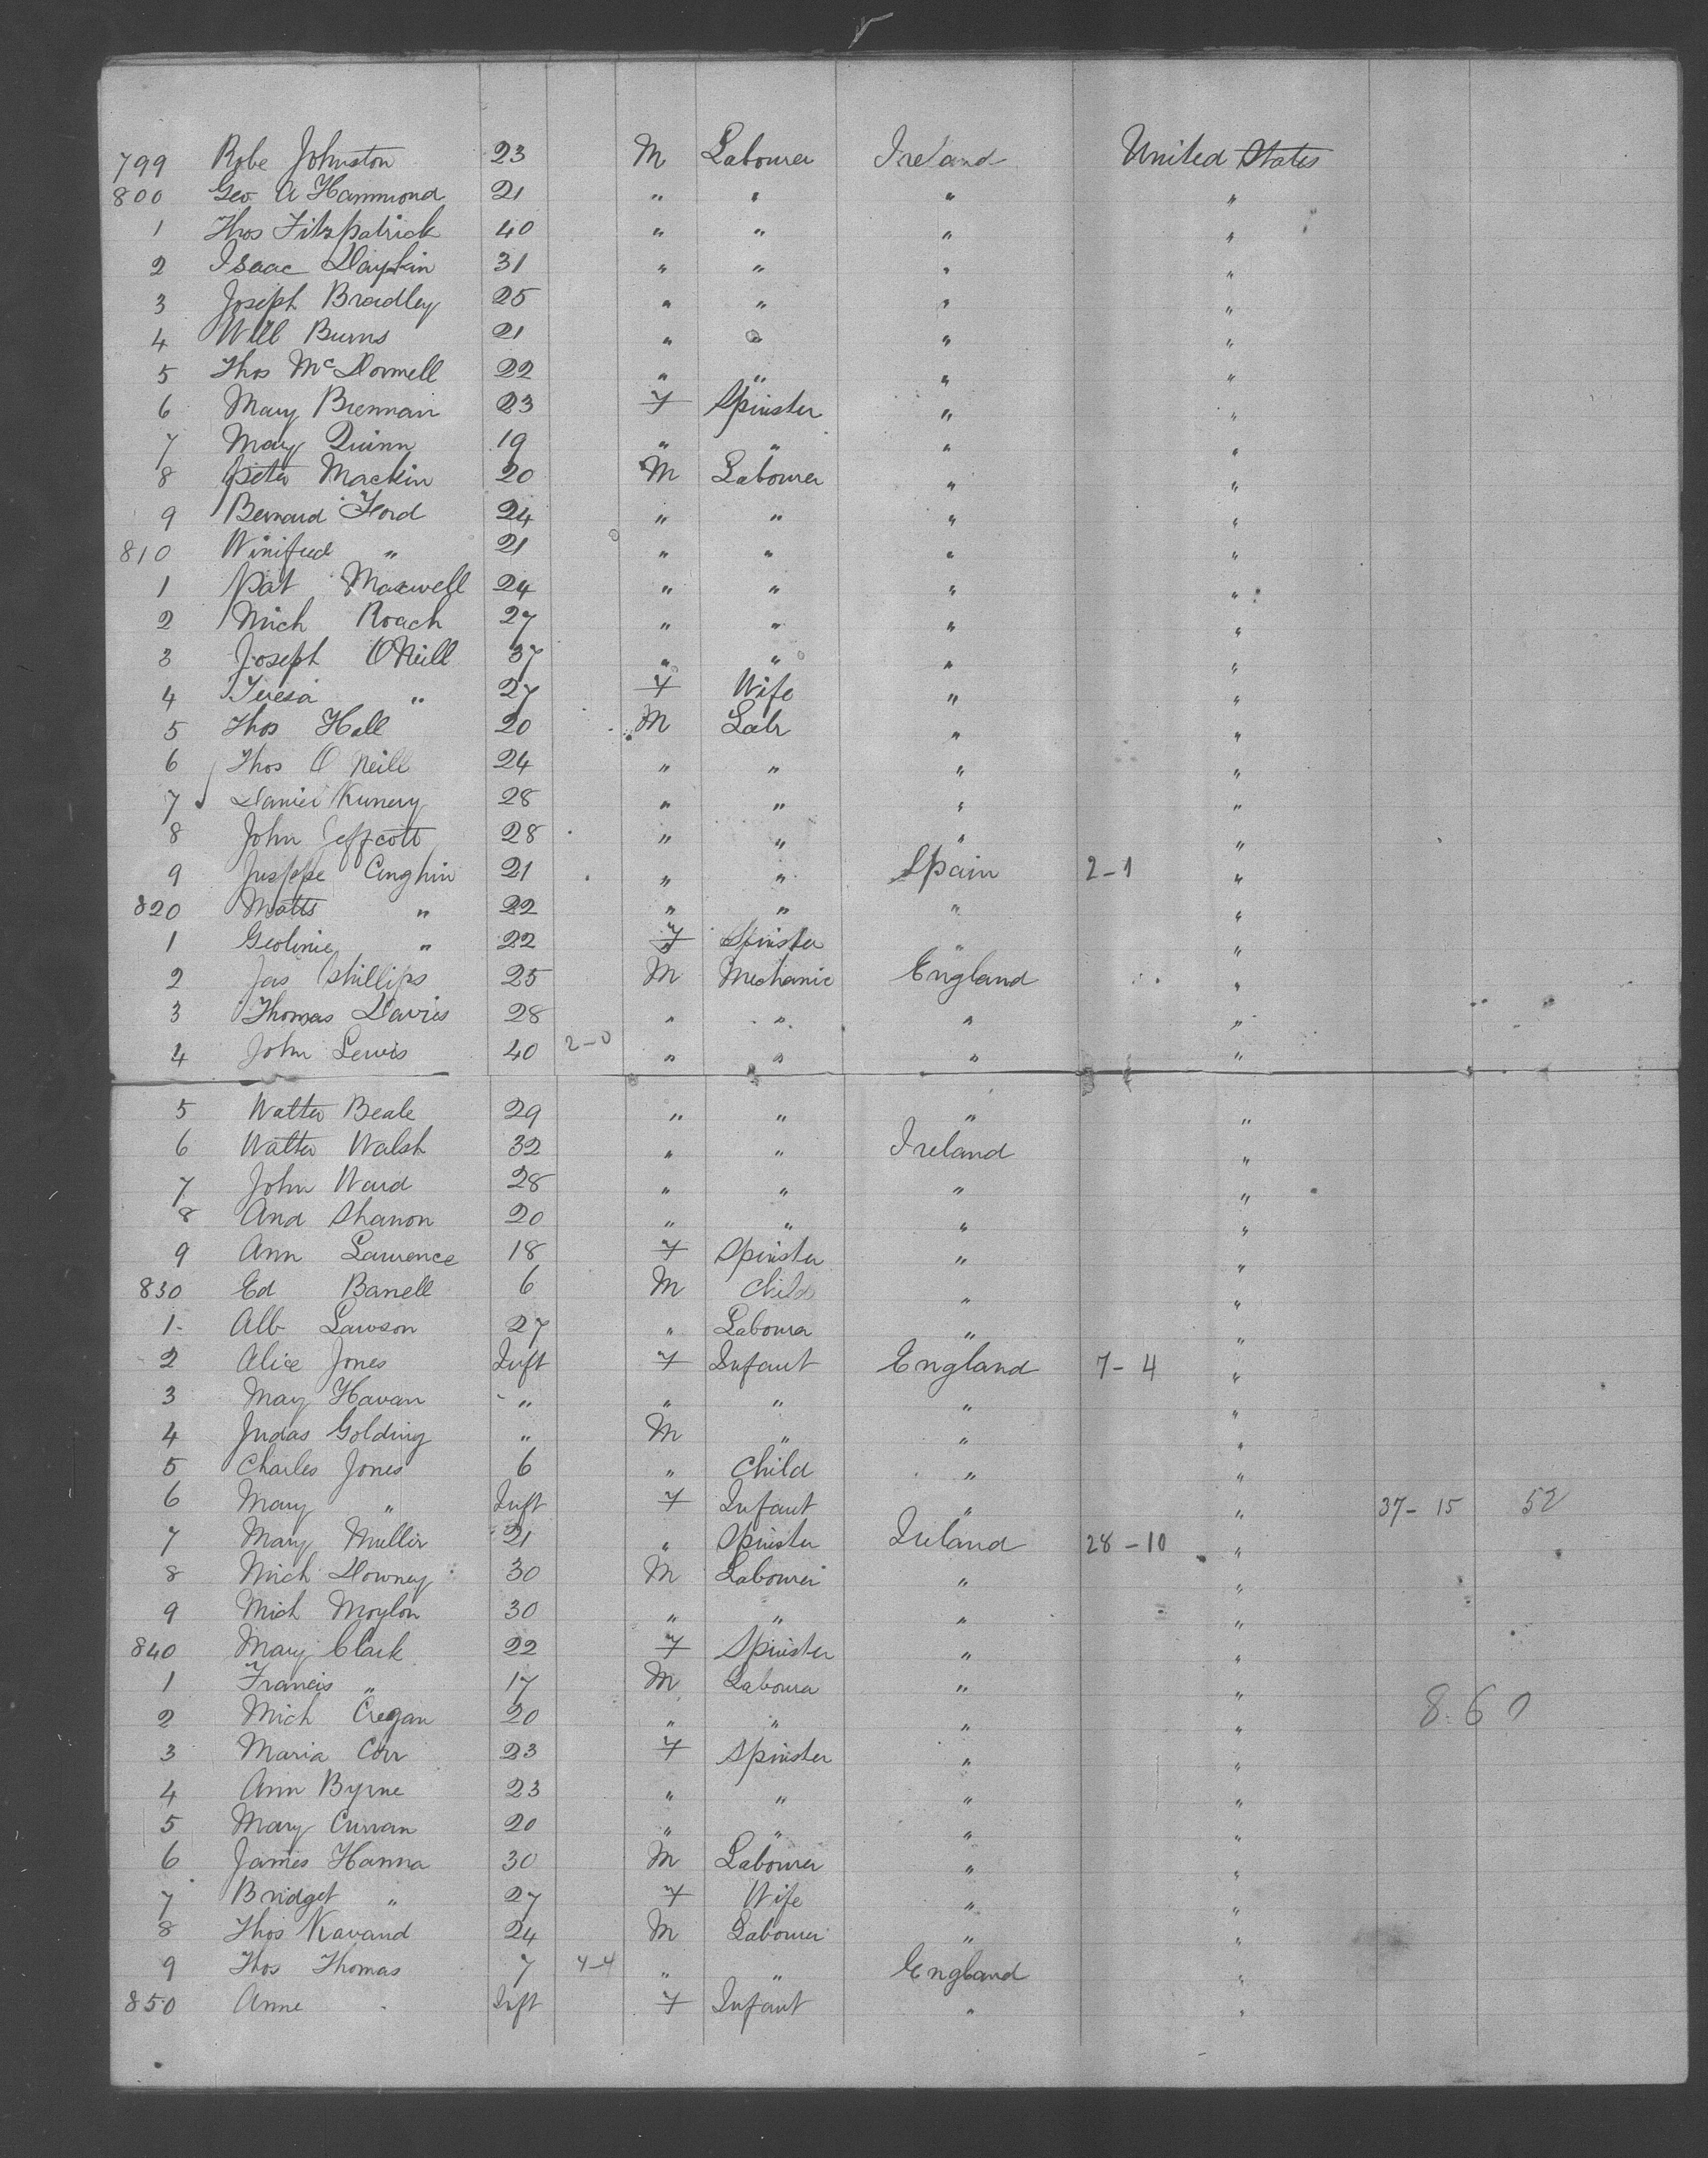 799 Robt Johnston 23 M Labourer Ireland United States
800 Geo A Hammond 21 " " " "
1 Thos Fitzpatrick 40 " " " "
2 Isaac 31 " " " "
3 Joseph Bradley 25 " " " "
4 Will Burns 21 " " " "
5 Thos McDonnell 22 " " " "
6 Mary Brennan 23 F Spinster " "
7 Mary Quinn 19 " " " "
8 Peter Mackin 20 M Labourer " "
9 Bernard Ford 24 " " " "
810 Winifred " 21 " " " "
1 Pat Maxwell 24 " " " "
2 Mich Roach 27 " " " "
3 Joseph O'Neill 37 " " " "
4 Teresa " 27 F Wife " "
5 Thos Hall 20 M Labr " "
6 Thos O Neill 24 " " " "
7 Daniel 28 " " " "
8 John Jeffcott 28 " " " "
9 21 " " Spain 2-1 "
820 Matts " 22 " " " "
1 " 22 F Spinster " "
2 Jas Phillips 25 M Mechanic England "
3 Thomas Davies 28 " " " "
4 John Lewis 40 2-0 " " " "
5 Walter Beale 29 " " " "
6 Walter Walsh 32 " " Ireland "
7 John Ward 28 " " " "
8 And Shanon 20 " " " "
9 Ann Lawrence 18 F Spinster " "
830 Ed Barrell 6 M Child " "
1 Alb Lawson 27 " Labourer " "
2 Alice Jones Inft F Infant England 7-4 "
3 May Havan " " " " "
4 Judas Golding " M " " "
5 Charles Jones 6 " Child " "
6 Mary " Inft F Infant " " 37-15 52
7 Mary Muller 21 " Spinster Ireland 28-10 "
8 Mich Downey 30 M Labourer " "
9 Mich Moylon 30 " " " "
840 Mary Clark 22 F Spinster " "
1 Francis " 17 M Labourer " "
2 Mich Cregan 20 " " " " 860
3 Maria Corr 23 F Spinster " "
4 Ann Byrne 23 " " " "
5 Mary Curran 20 " " " "
6 James Hanna 30 M Labourer " "
7 Bridget " 27 F Wife " "
8 Thos Kavand 24 M Labourer " "
9 Thos Thomas 7 4-4 " " England "
850 Anne Inft F Infant " "